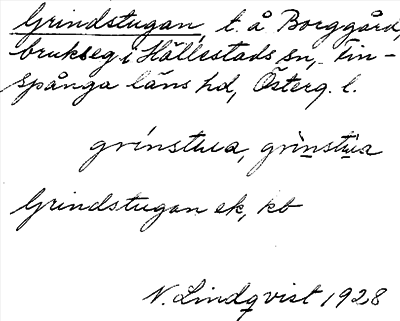 Grindstugan, t. å Borggård,
brukseg. i Hällestads sn, Fin-
spånga läns hd, Österg. l.
grinstua, grinstua
Grindstugan ek, kb
N. Lindqvist 1928